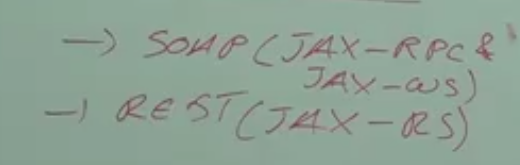 → SOAP (JAX-RPC &
JAX-WS)
→ REST (JAX-RS)